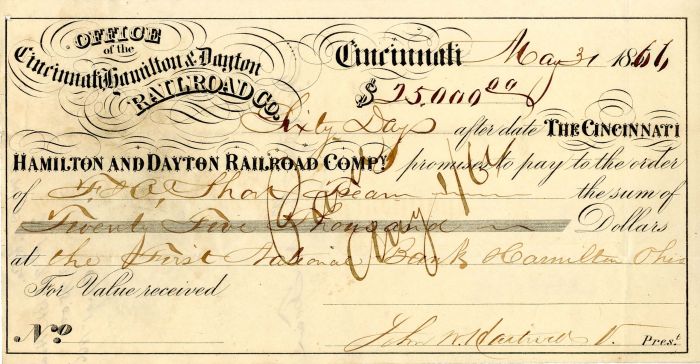 OFFICE
of the
Cincinnati, Hamilton & Dayton
RAILROAD CO.
Cincinnati May 31 1866
$ 25,000 00
Sixty Days after date THE CINCINNATI
HAMILTON AND DAYTON RAILROAD COMPY. promises to pay to the order
of the sum of
Twenty Five Thousand Dollars
at the First National Bank Hamilton Ohio
For Value received
No.
John W. Hartwell V. Prest.